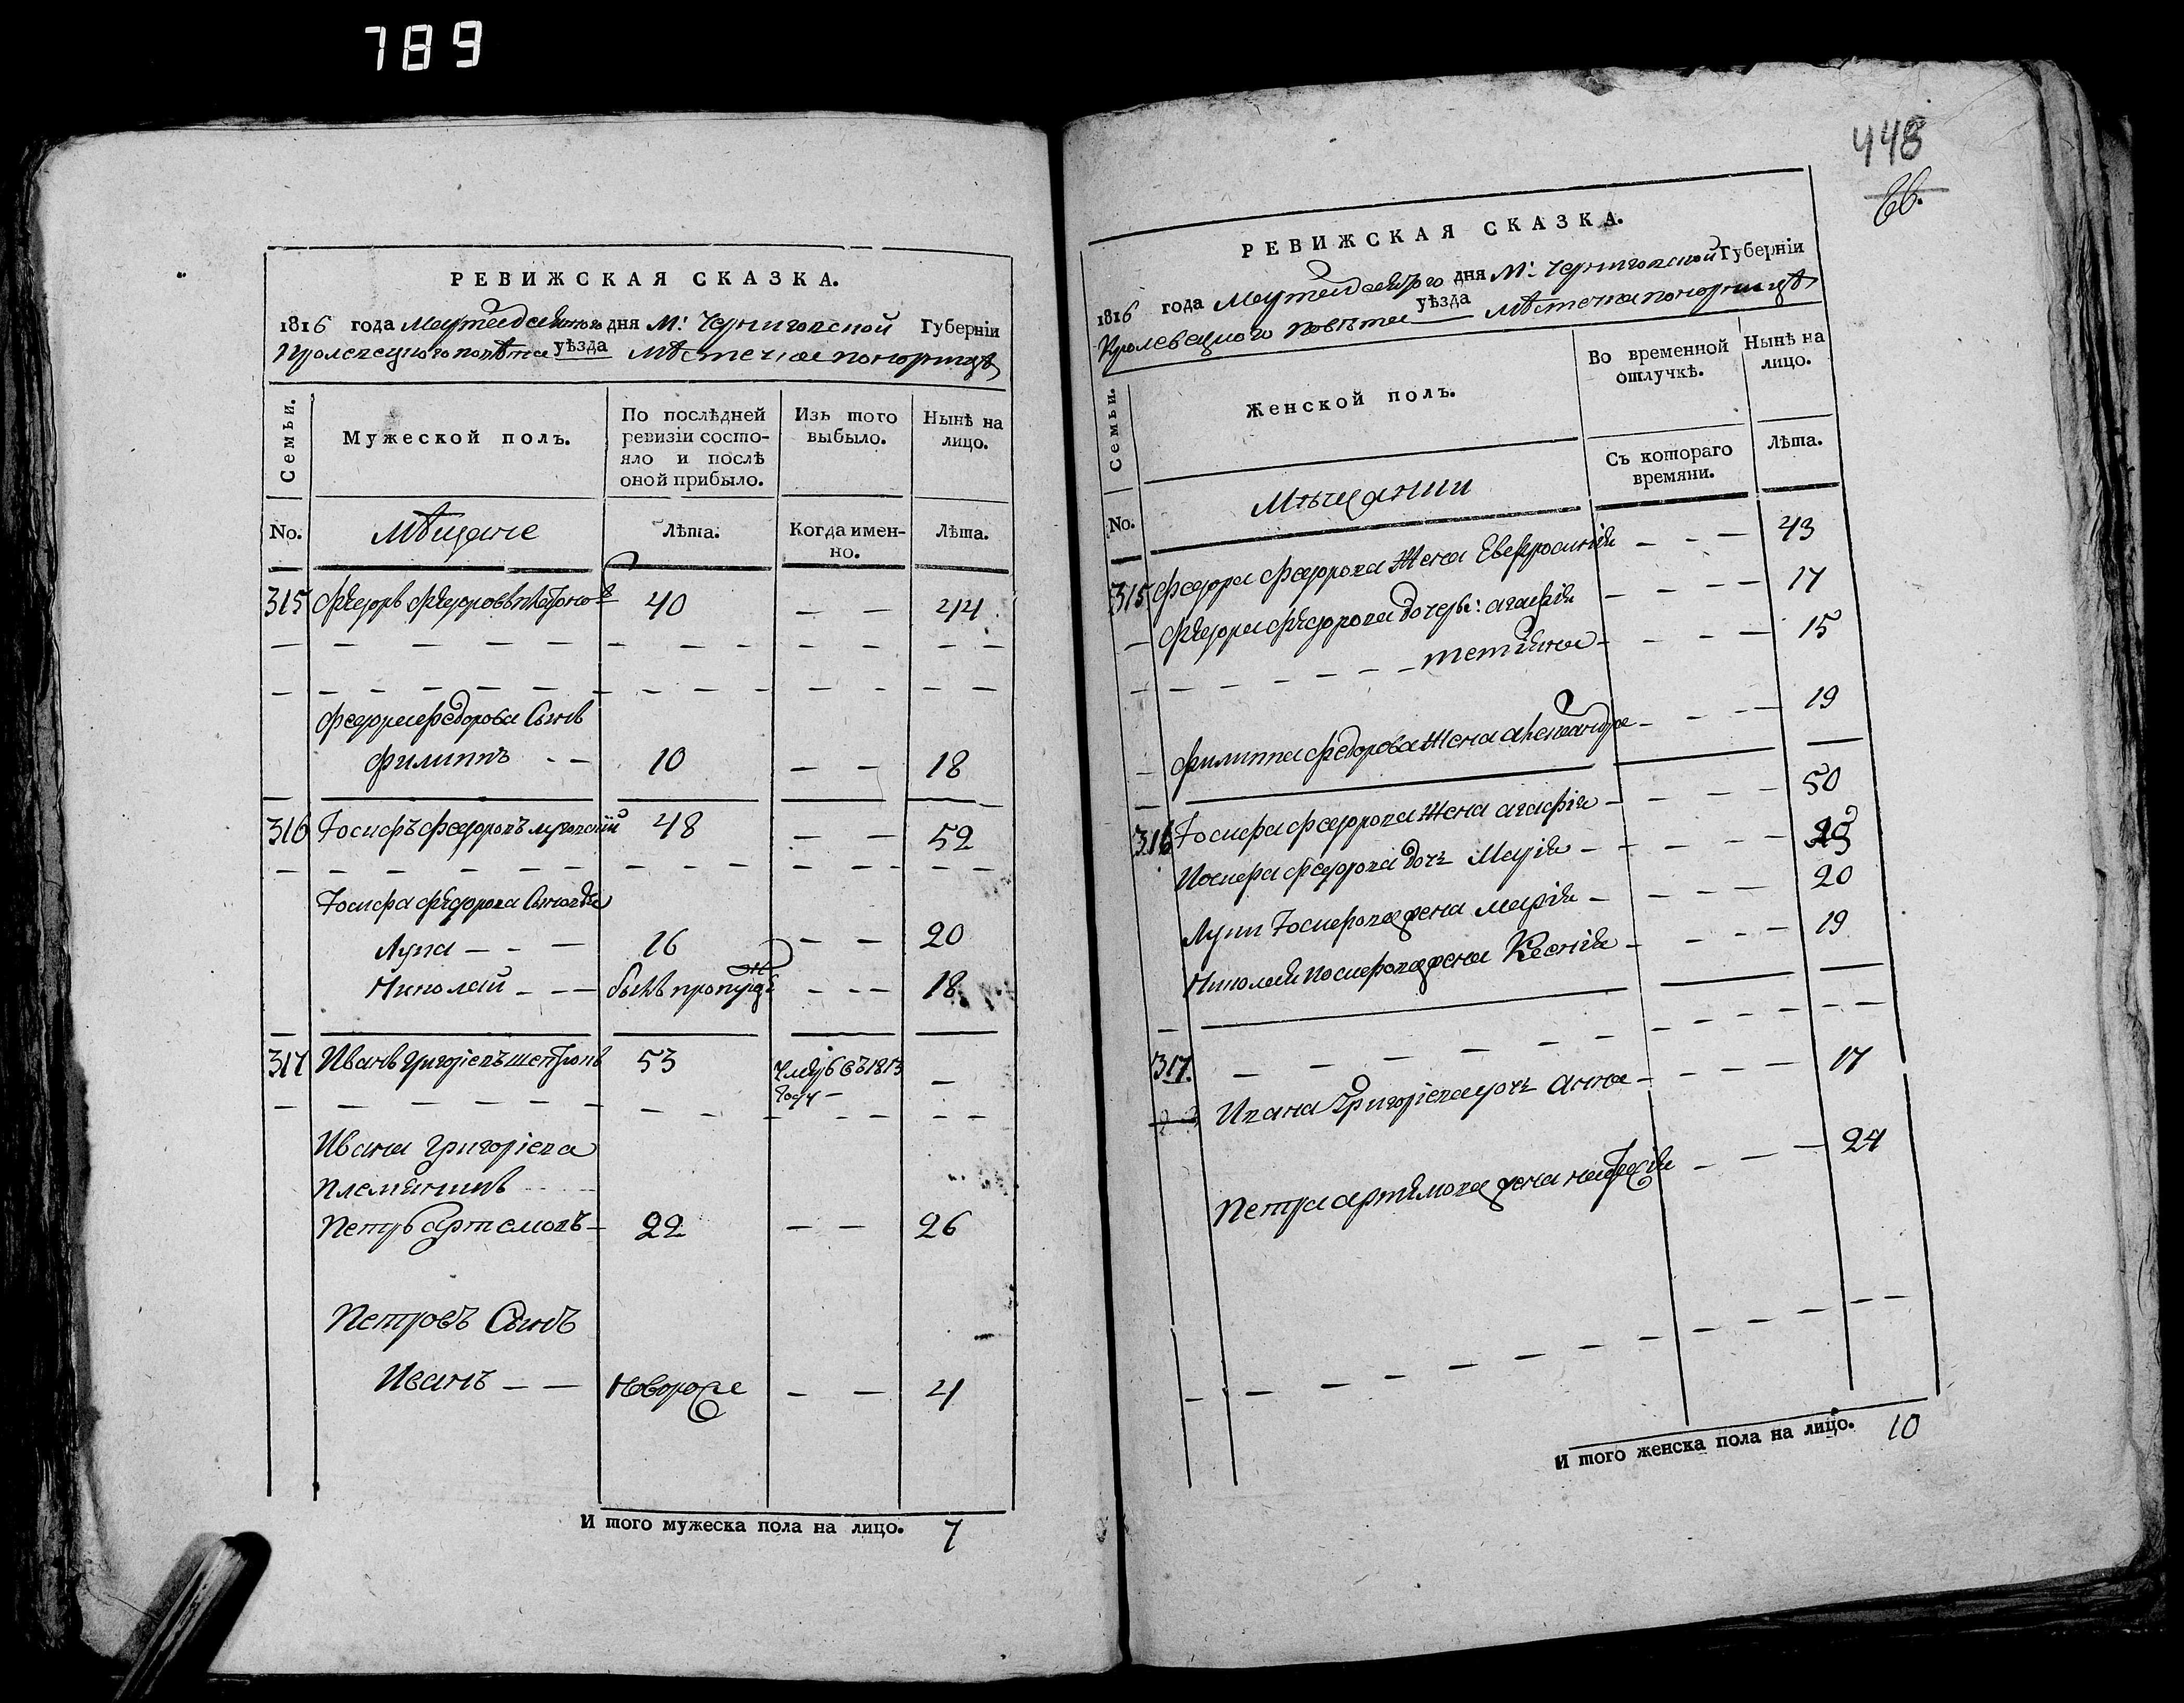 789
РЕВИЖСКАЯ СКАЗКА.
1816 года Марта дня М: Черниговской Губерніи
Кролевецкого повѣта уѣзда Мѣстечка Понорницѣ
Семьи.
Мужеской полъ.
По послѣдней ревизіи состояло и послѣ оной прибыло.
Изъ того выбыло.
Нынѣ на лицо.
No. Мѣщане Лѣта. Когда именно. Лѣта.
315 Федоръ Федоровъ 40 — — 44
Федора Федорова Сынъ
Филиппъ - — 10 — — 18
316 Іосифъ Федоровъ 48 — — 52
Іосифа Федорова Сыновья
Лупа — - — 16 — — 20
Николай - — — былъ пропущ - — — 18
317 Иванъ Григоріевъ 53 въ 1813 —
году —
Ивана Григоріева
племянникъ
Петръ Артемовъ — 22 — — 26
Петровъ Сынъ
Иванъ — — Новорож — — 4
И того мужеска пола на лицо. 7
448
66.
РЕВИЖСКАЯ СКАЗКА.
1816 года Марта дня М: Черниговской Губерніи
Кролевецкого повѣта уѣзда Мѣстечка Понорницѣ
Семьи.
Женской полъ.
Во временной отлучкѣ.
Нынѣ на лицо.
Съ котораго времяни.
Лѣта.
No. Мѣщанки
315 Федора Федорова жена Евфросинія - - — 43
Федора Федорова дочери: Агафія - - — — 17
Тетіяна - - - — 15
Филиппа Федорова жена Александра - - — 19
316 Іосифа Федорова жена Агафія - - — 50
Иосифа Федорова дочь Марія - - —
Лупи Іосифова жена Марія - - — 20
Николая Иосифова жена Ксенія - - — 19
317. — — — — —
Ивана Григоріева дочь Анна - - — 17
Петра Артемова жена - — — 24
И того женска пола на лицо. 10